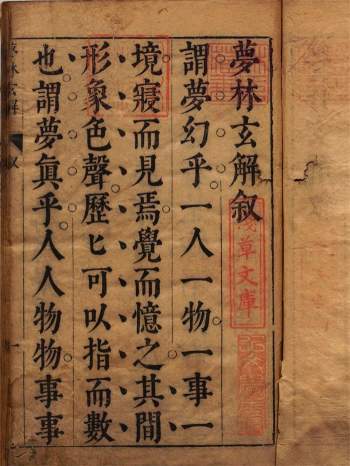 夢林玄解叙
謂夢幻乎一人一物一事一
境寢而見焉覺而憶之其間
形象色聲歷匕可以指而數
也謂夢眞乎人人物物事事
淺草文庫